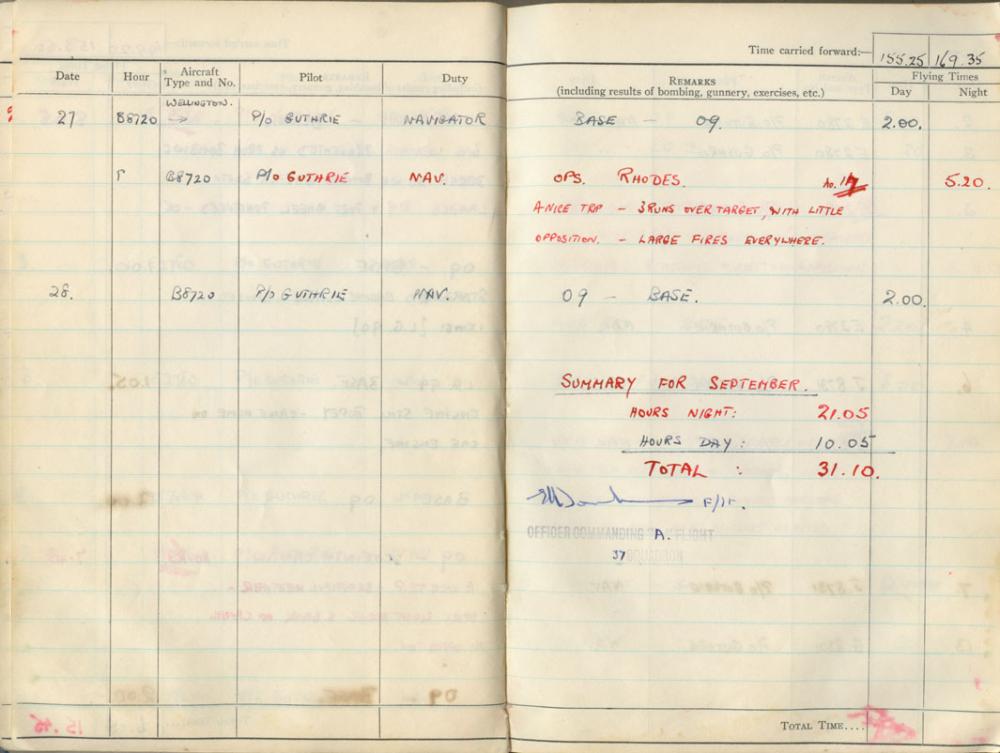 Time carried forward:— 155.25 169.35
Date Hour Aircraft Type and No. Pilot Duty REMARKS (including results of bombing, gunnery, exercises, etc.) Flying Times Day Night
WELLINGTON.
27 B8720 P/O GUTHRIE NAVIGATOR BASE — 09. 2.00.
B8720 P/O GUTHRIE NAV. OPS. RHODES. No. 5.20.
A NICE TRIP – 3 RUNS OVER TARGET, WITH LITTLE
OPPOSITION. – LARGE FIRES EVERYWHERE.
28. B8720 P/O GUTHRIE NAV. 09 — BASE. 2.00.
SUMMARY FOR SEPTEMBER.
HOURS NIGHT: 21.05
HOURS DAY: 10.05
TOTAL : 31.10.
F/Lt.
OFFICER COMMANDING A. FLIGHT
37 SQUADRON
TOTAL TIME....